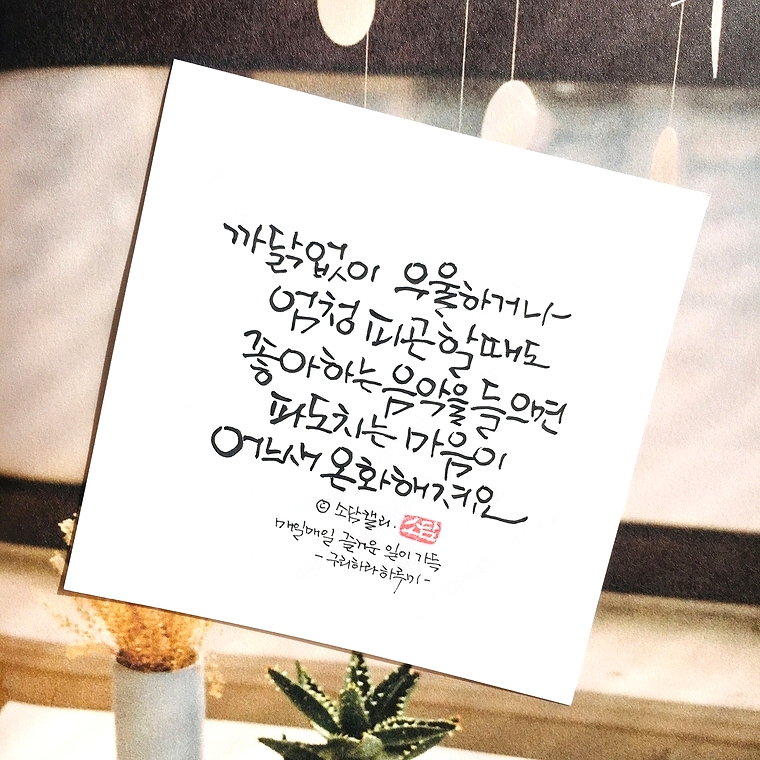 까닭없이 우울하거나
엄청 피곤할때도
좋아하는 음악을 들으면
파도치는 마음이
어느새 온화해져요
© 소담캘리. 소담
매일매일 즐거운 일이 가득
- 구리하라 하루미 -